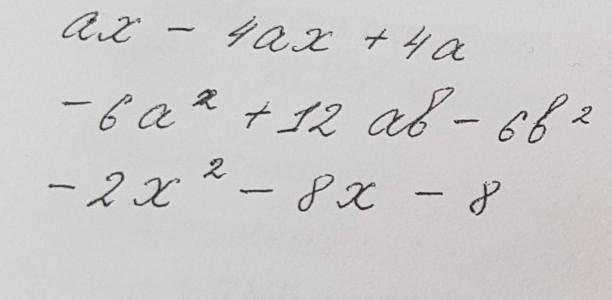 ax - 4ax + 4a
-6a² + 12ab - 6b²
-2x² - 8x - 8